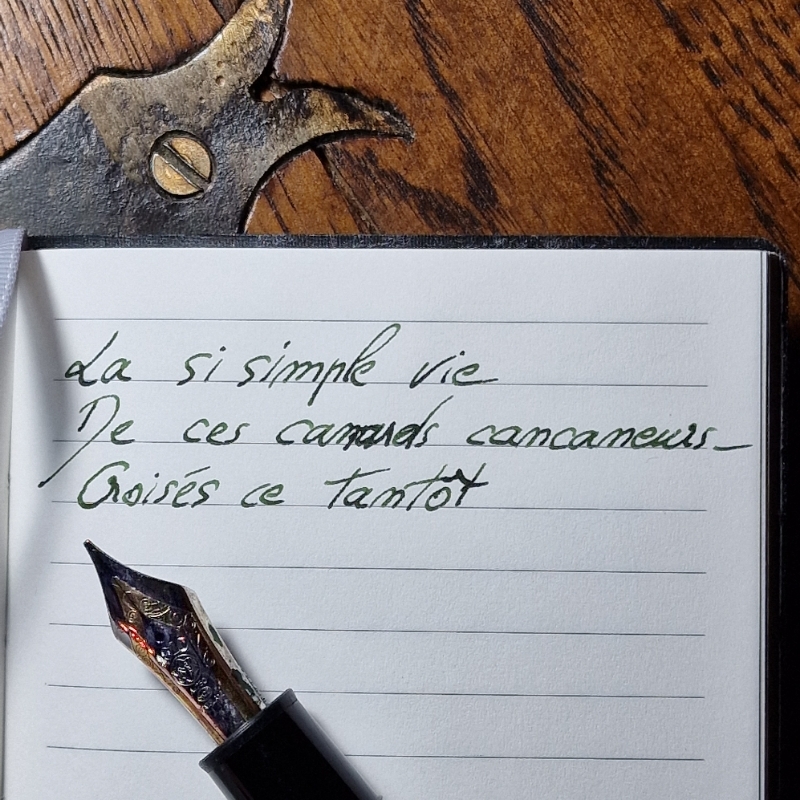 La si simple vie
De ces canards cancaneurs_
Croisés ce tantôt